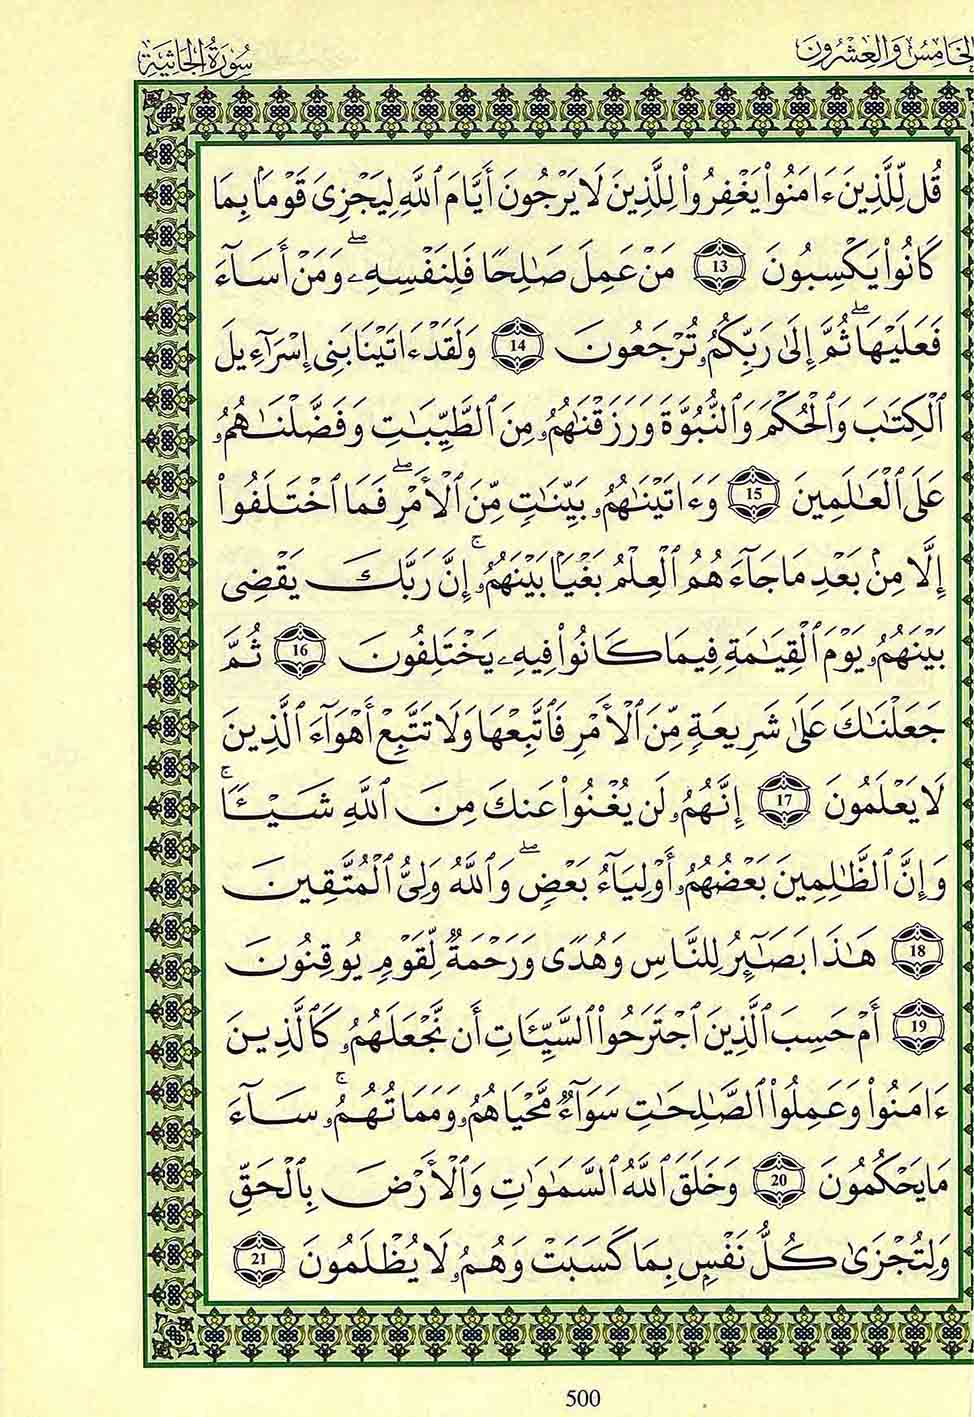 سُورَةُ الجَاثِيَةِ
الخَامِسُ وَالعِشْرُونَ
قُل لِّلَّذِينَ ءَامَنُواْ يَغْفِرُواْ لِلَّذِينَ لَا يَرْجُونَ أَيَّامَ اَ۬للَّهِ لِيَجْزِىَ قَوْماَۢ بِمَا
كَانُواْ يَكْسِبُونَ 13 مَنْ عَمِلَ صَٰلِحًا فَلِنَفْسِهِۦۖ وَمَنْ أَسَآءَ
فَعَلَيْهَاۖ ثُمَّ إِلَىٰ رَبِّكُمُۥ تُرْجَعُونَ 14 وَلَقَدْ ءَاتَيْنَا بَنِى إِسْرَآءِيلَ
اَ۬لْكِتَٰبَ وَالْحُكْمَ وَالنُّبُوَّةَ وَرَزَقْنَٰهُمُۥ مِنَ اَ۬لطَّيِّبَٰتِ وَفَضَّلْنَٰهُمُۥ
عَلَى اَ۬لْعَٰلَمِينَ 15 وَءَاتَيْنَٰهُمُۥ بَيِّنَٰتٍ مِّنَ اَ۬لْأَمْرِۖ فَمَا اَ۪خْتَلَفُواْ
إِلَّا مِنۢ بَعْدِ مَا جَآءَهُمُ اُ۬لْعِلْمُ بَغْياَۢ بَيْنَهُمُۥۚ إِنَّ رَبَّكَ يَقْضِى
بَيْنَهُمُۥ يَوْمَ اَ۬لْقِيَٰمَةِ فِيمَا كَانُواْ فِيهِۦ يَخْتَلِفُونَ 16 ثُمَّ
جَعَلْنَٰكَ عَلَىٰ شَرِيعَةٍ مِّنَ اَ۬لْأَمْرِ فَاتَّبِعْهَا وَلَا تَتَّبِعْ أَهْوَآءَ اَ۬لَّذِينَ
لَا يَعْلَمُونَ 17 إِنَّهُمُۥ لَن يُغْنُواْ عَنكَ مِنَ اَ۬للَّهِ شَيْـًٔاۚ
وَإِنَّ اَ۬لظَّٰلِمِينَ بَعْضُهُمُۥ أَوْلِيَآءُ بَعْضٍۖ وَاللَّهُ وَلِىُّ اُ۬لْمُتَّقِينَ
18 هَٰذَا بَصَٰٓئِرُ لِلنَّاسِ وَهُدًى وَرَحْمَةٌ لِّقَوْمٍ يُوقِنُونَ
19 أَمْ حَسِبَ اَ۬لَّذِينَ اَ۪جْتَرَحُواْ اُ۬لسَّيِّـَٔاتِ أَن نَّجْعَلَهُمُۥ كَالَّذِينَ
ءَامَنُواْ وَعَمِلُواْ اُ۬لصَّٰلِحَٰتِ سَوَآءٌ مَّحْيَاهُمُۥ وَمَمَاتُهُمُۥۚ سَآءَ
مَا يَحْكُمُونَ 20 وَخَلَقَ اَ۬للَّهُ اُ۬لسَّمَٰوَٰتِ وَالْأَرْضَ بِالْحَقِّ
وَلِتُجْزَىٰ كُلُّ نَفْسٍۭ بِمَا كَسَبَتْ وَهُمُۥ لَا يُظْلَمُونَ 21
500